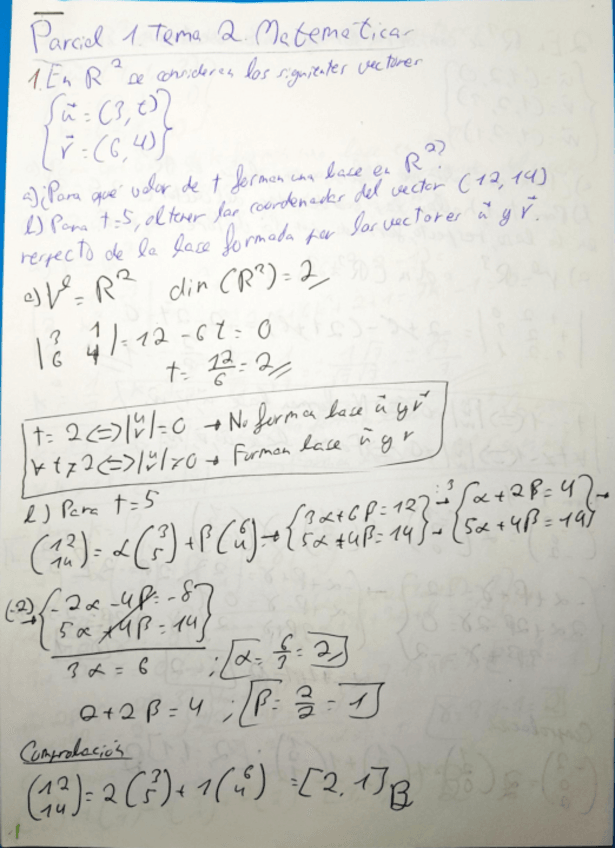 Parcial 1 Tema 2. Matemáticas
1. En R² se consideran los siguientes vectores
{ u⃗ = (3, t) }
{ v⃗ = (6, 4) }
a) ¿Para qué valor de t forman una base en R²?
b) Para t=5, obtener las coordenadas del vector (12, 14)
respecto de la base formada por los vectores u⃗ y v⃗.
a) V² = R² dim (R²) = 2
|3 t| = 12 - 6t = 0
|6 4|
t = 12/6 = 2
t = 2 <=> |u v| = 0 → No forman base u⃗ y v⃗
∀ t ≠ 2 <=> |u v| ≠ 0 → Forman base u⃗ y v
b) Para t=5
(12 14) = α (3 5) + β (6 4) → { 3α + 6β = 12 } → :3 { α + 2β = 4 } →
{ 5α + 4β = 14 } → { 5α + 4β = 14 }
(-2) → { -2α - 4β = -8 }
{ 5α + 4β = 14 }
3α = 6 ; α = 6/3 = 2
2 + 2β = 4 ; β = 2/2 = 1
Comprobación
(12 14) = 2 (3 5) + 1 (6 4) = [2, 1] B